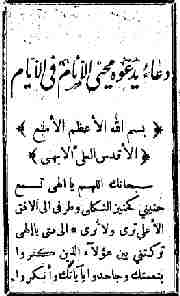 دعاء يدعوه محيى الأنام فى الأيام
﴿ بسم الله الأعظم الأمنع ﴾
﴿ الأقدس العلىّ الأبهى ﴾
سبحانك اللهم يا الهى تسمع
حنينى كحنين الثكلى وطرفى الى الافق
الأعلى ترى ولا أرى الى متى يا الهى
تركتنى بين هؤلاء الذين كفروا
بنعمتك وجاحدوا بآياتك وأنكروا